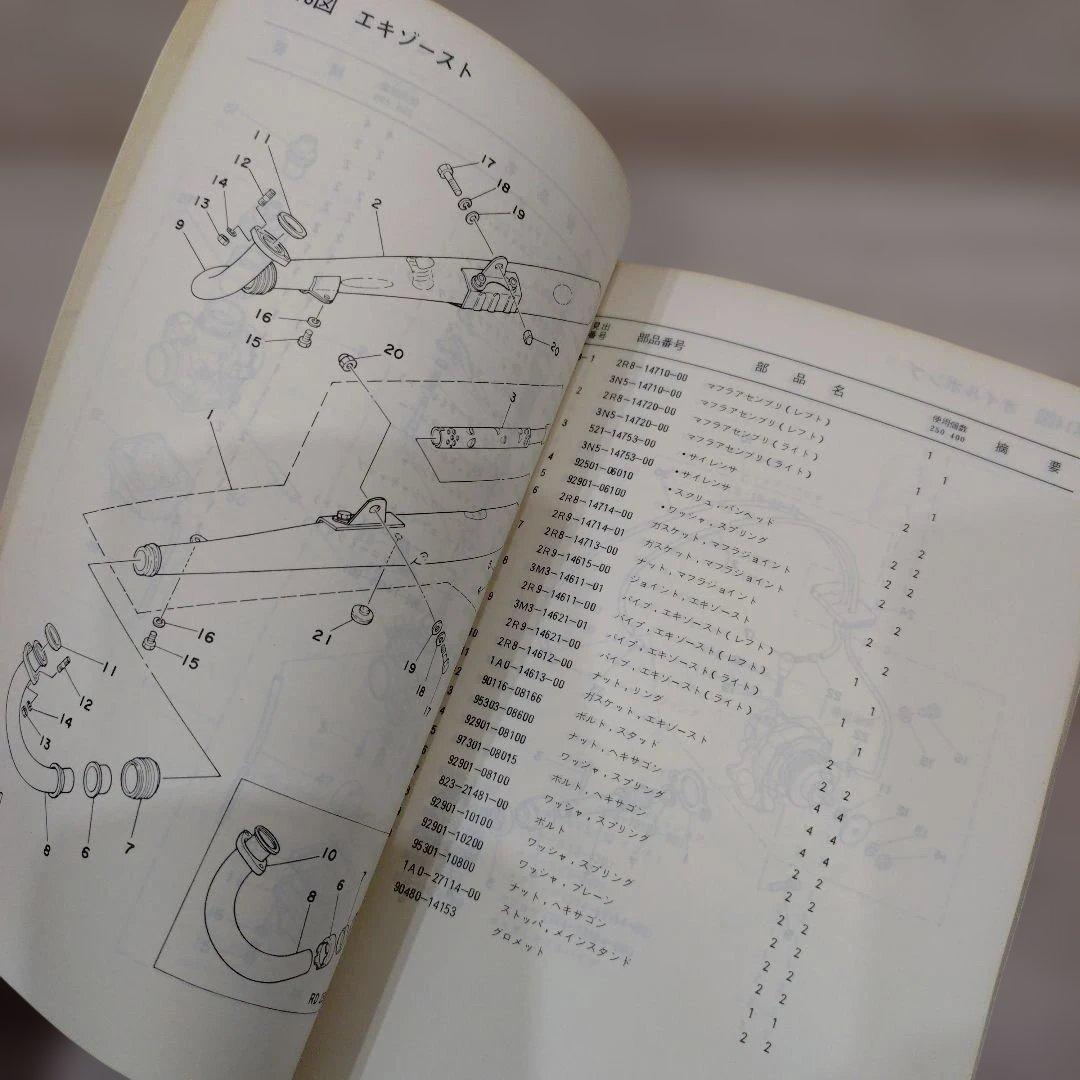 図 エキゾースト
11
12
14
13
9
2
17
18
19
16
15
20
20
1
3
16
15
21
19
18
17
11
12
14
13
8
6
7
10
8
6
RD
見出番号 部品番号 部品名 使用個数 250 400 摘要
1 2R8-14710-00 マフラアセンブリ(レフト) 1
3N5-14710-00 マフラアセンブリ(レフト) 1
2 2R8-14720-00 マフラアセンブリ(ライト) 1
3N5-14720-00 マフラアセンブリ(ライト) 1
3 521-14753-00 ・サイレンサ 2
3N5-14753-00 ・サイレンサ 2
4 92501-06010 ・スクリュ,パンヘッド 2 2
5 92901-06100 ・ワッシャ,スプリング 2 2
6 2R8-14714-00 ガスケット,マフラジョイント 2
2R9-14714-01 ガスケット,マフラジョイント 2
7 2R8-14713-00 ナット,マフラジョイント 2
2R9-14615-00 ジョイント,エキゾースト 2
8 3M3-14611-01 パイプ,エキゾースト(レフト) 1
2R9-14611-00 パイプ,エキゾースト(レフト) 1
9 3M3-14621-01 パイプ,エキゾースト(ライト) 1
2R9-14621-00 パイプ,エキゾースト(ライト) 1
10 2R8-14612-00 ナット,リング 2
11 1A0-14613-00 ガスケット,エキゾースト 2 2
12 90116-08166 ボルト,スタッド 4 4
13 95303-08600 ナット,ヘキサゴン 4 4
4 92901-08100 ワッシャ,スプリング 4 4
5 97301-08015 ボルト,ヘキサゴン 2 2
92901-08100 ワッシャ,スプリング 2 2
823-21481-00 ボルト 2 2
92901-10100 ワッシャ,スプリング 2 2
92901-10200 ワッシャ,プレーン 2 2
95301-10800 ナット,ヘキサゴン 2 2
1A0-27114-00 ストッパ,メインスタンド 1 1
90480-14153 グロメット 2 2